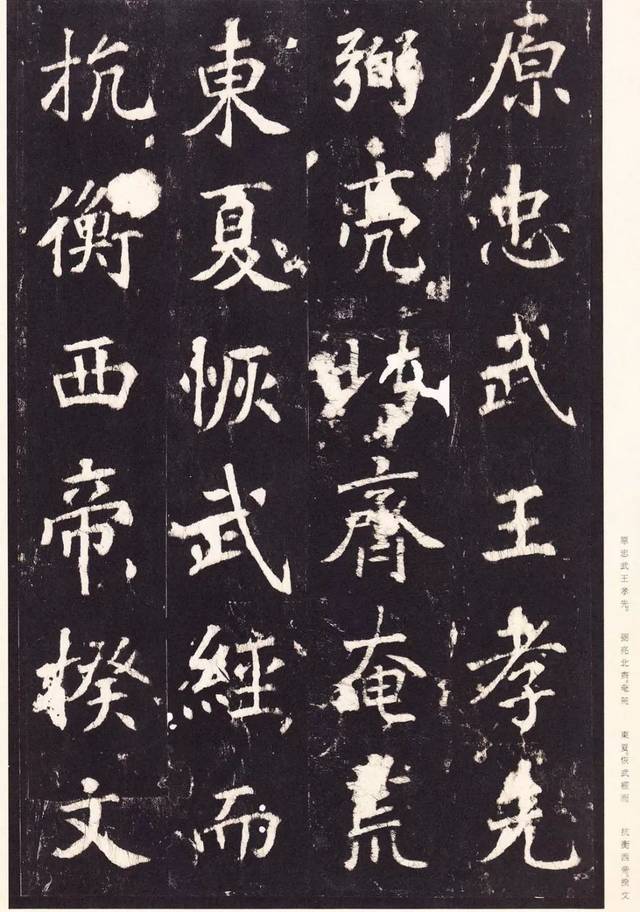 原忠武王孝先
弼亮北齊奄荒
東夏恢武經而
抗衡西帝揆文
原忠武王孝先。 弼亮北齊，奄荒 東夏，恢武經而 抗衡西帝，揆文